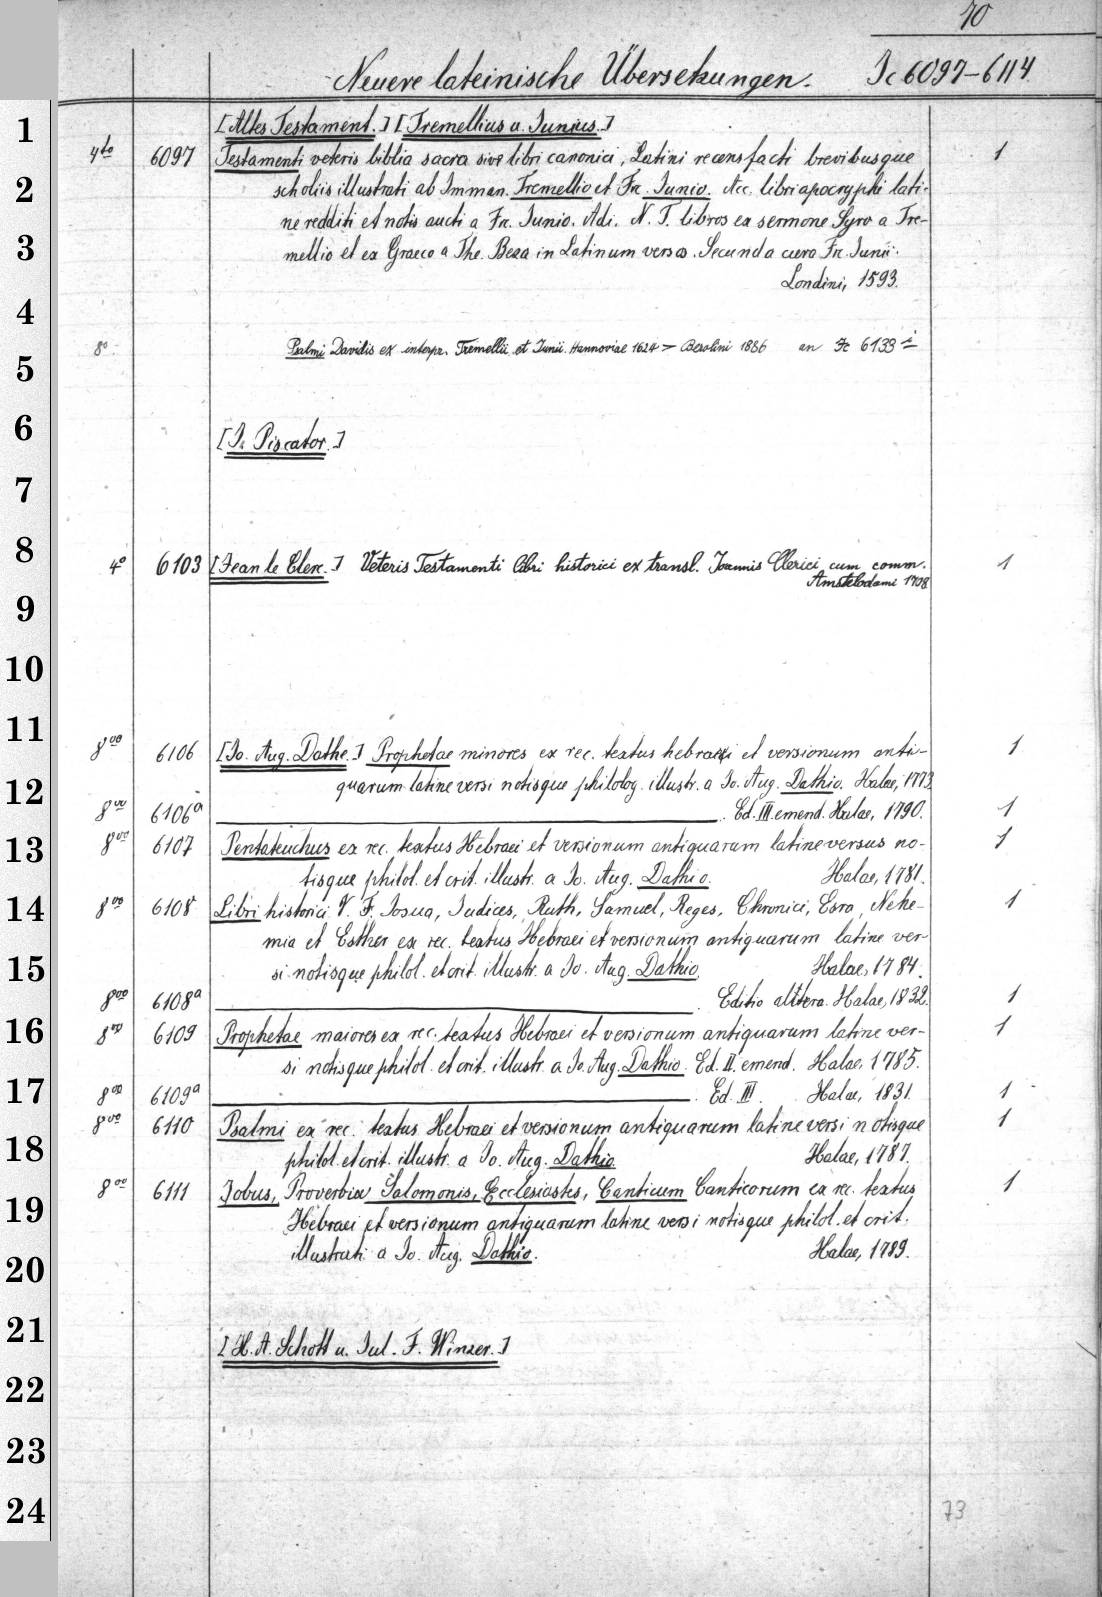 70
Neuere lateinische Übersetzungen. Ic 6097-6114
1
[Altes Testament.] [Tremellius u. Junius.]
4to 6097 Testamenti veteris biblia sacra sive libri canonici, Latini recens facti brevibusque 1
2 scholiis illustrati ab Imman. Tremellio et Fr. Junio. Acc. libri apocryphi lati-
ne redditi et notis aucti a Fr. Junio. Adi. N. T. libros ex sermone Syro a Tre-
3 mellio et ex Graeco a The. Beza in Latinum versos. Secunda cura Fr. Junii.
Londini, 1593.
4
8o Psalmi Davidis ex interpr. Tremellii et Junii. Hannoviae 1624 = Berolini 1886 an Ic 6133
5
6 [J. Piscator.]
7
8
4o 6103 [Jean le Clerc.] Veteris Testamenti libri historici ex transl. Joannis Clerici cum comm. 1
Amstelodami 1708
9
10
11
8vo 6106 [Jo. Aug. Dathe.] Prophetae minores ex rec. textus hebraei et versionum anti- 1
12 quarum latine versi notisque philolog. illustr. a Jo. Aug. Dathio. Halae, 1773.
8vo 6106a Ed. III emend. Halae, 1790. 1
13 8vo 6107 Pentateuchus ex rec. textus Hebraei et versionum antiquarum latine versus no- 1
tisque philol. et crit. illustr. a Jo. Aug. Dathio. Halae, 1781.
14 8vo 6108 Libri historici V. T. Josua, Judices, Ruth, Samuel, Reges, Chronici, Esra, Nehe- 1
mia et Esther ex rec. textus Hebraei et versionum antiquarum latine ver-
15 si notisque philol. et crit. illustr. a Jo. Aug. Dathio. Halae, 1784.
8vo 6108a Editio altera. Halae, 1832. 1
16 8vo 6109 Prophetae maiores ex rec. textus Hebraei et versionum antiquarum latine ver- 1
si notisque philol. et crit. illustr. a Jo. Aug. Dathio. Ed. II emend. Halae, 1785.
17 8vo 6109a Ed. III. Halae, 1831. 1
8vo 6110 Psalmi ex rec. textus Hebraei et versionum antiquarum latine versi notisque 1
18 philol. et crit. illustr. a Jo. Aug. Dathio. Halae, 1787.
8vo 6111 Jobus, Proverbia Salomonis, Ecclesiastes, Canticum Canticorum ex rec. textus 1
19 Hebraei et versionum antiquarum latine versi notisque philol. et crit.
illustrati a Jo. Aug. Dathio. Halae, 1789.
20
21
[H. A. Schott u. Jul. F. Winzer.]
22
23
24 73